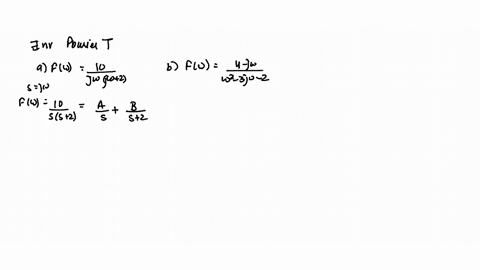 Inv Fourier T
a) F(ω) = 10 / jω(jω+2)
b) F(ω) = 4-jω / ω²-3jω-2
s=jω
F(ω) = 10 / s(s+2) = A / s + B / s+2